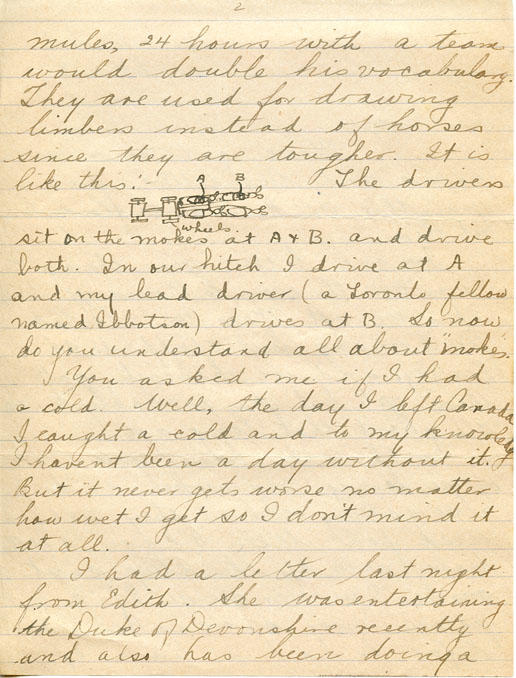 2
mules, 24 hours with a team
would double his vocabulary.
They are used for drawing
limbers instead of horses
since they are tougher. It is
like this:- The drivers
A B
wheels.
sit on the mokes at A & B. and drive
both. In our hitch I drive at A
and my lead driver (a Toronto fellow
named Ibbotson) drives at B. So now
do you understand all about "mokes".
You asked me if I had
a cold. Well, the day I left Canada
I caught a cold and to my knowledge
I havent been a day without it.
But it never gets worse no matter
how wet I get so I don't mind it
at all.
I had a letter last night
from Edith. She was entertaining
the Duke of Devonshire recently
and also has been doing a